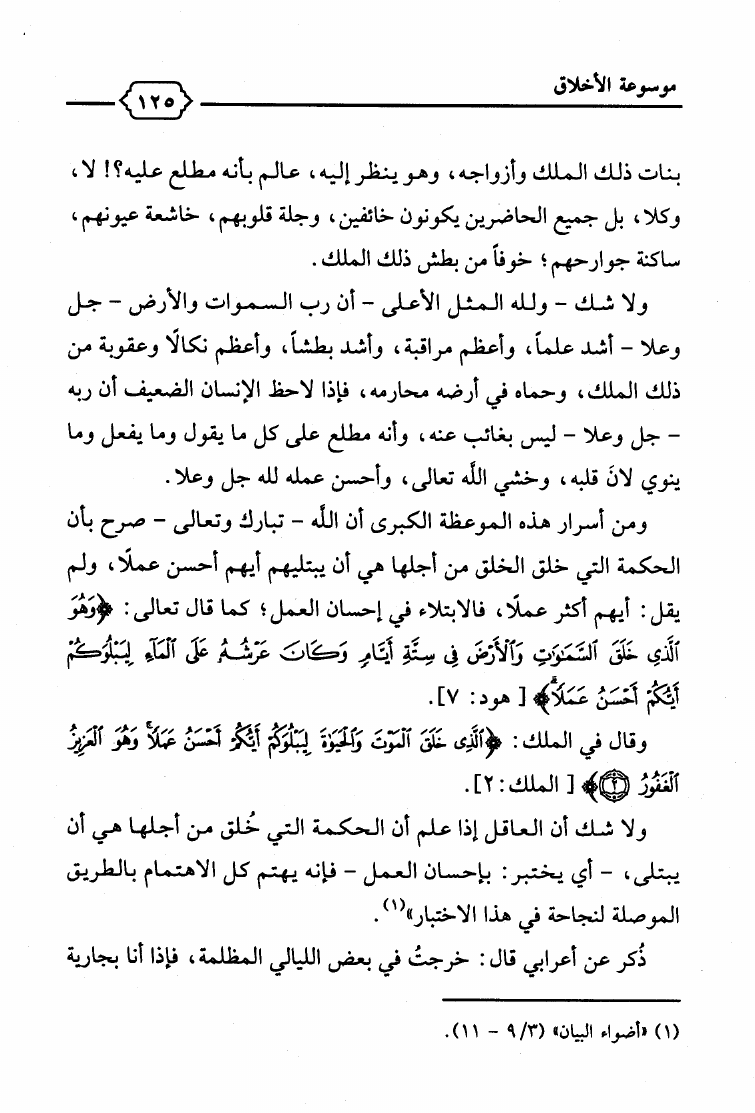 موسوعة الأخلاق
١٢٥
بنات ذلك الملك وأزواجه، وهو ينظر إليه، عالم بأنه مطلع عليه؟! لا،
وكلا، بل جميع الحاضرين يكونون خائفين، وجلة قلوبهم، خاشعة عيونهم،
ساكنة جوارحهم؛ خوفاً من بطش ذلك الملك.
ولا شك - ولله المثل الأعلى - أن رب السموات والأرض - جل
وعلا - أشد علماً، وأعظم مراقبة، وأشد بطشاً، وأعظم نكالًا وعقوبة من
ذلك الملك، وحماه في أرضه محارمه، فإذا لاحظ الإنسان الضعيف أن ربه
- جل وعلا - ليس بغائب عنه، وأنه مطلع على كل ما يقول وما يفعل وما
ينوي لانَ قلبه، وخشي اللَّه تعالى، وأحسن عمله لله جل وعلا.
ومن أسرار هذه الموعظة الكبرى أن اللَّه - تبارك وتعالى - صرح بأن
الحكمة التي خلق الخلق من أجلها هي أن يبتليهم أيهم أحسن عملًا، ولم
يقل: أيهم أكثر عملًا، فالابتلاء في إحسان العمل؛ كما قال تعالى: ﴿وَهُوَ
ٱلَّذِى خَلَقَ ٱلسَّمَٰوَٰتِ وَٱلْأَرْضَ فِى سِتَّةِ أَيَّامٍ وَكَانَ عَرْشُهُۥ عَلَى ٱلْمَآءِ لِيَبْلُوَكُمْ
أَيُّكُمْ أَحْسَنُ عَمَلًاۗ﴾ [هود: ٧].
وقال في الملك: ﴿ٱلَّذِى خَلَقَ ٱلْمَوْتَ وَٱلْحَيَوٰةَ لِيَبْلُوَكُمْ أَيُّكُمْ أَحْسَنُ عَمَلًاۚ وَهُوَ ٱلْعَزِيزُ
ٱلْغَفُورُ ٢﴾ [الملك: ٢].
ولا شك أن العاقل إذا علم أن الحكمة التي خُلق من أجلها هي أن
يبتلى، - أي يختبر: بإحسان العمل - فإنه يهتم كل الاهتمام بالطريق
الموصلة لنجاحة في هذا الاختبار»(١).
ذُكر عن أعرابي قال: خرجتُ في بعض الليالي المظلمة، فإذا أنا بجارية
(١) «أضواء البيان» (٣/ ٩ - ١١).